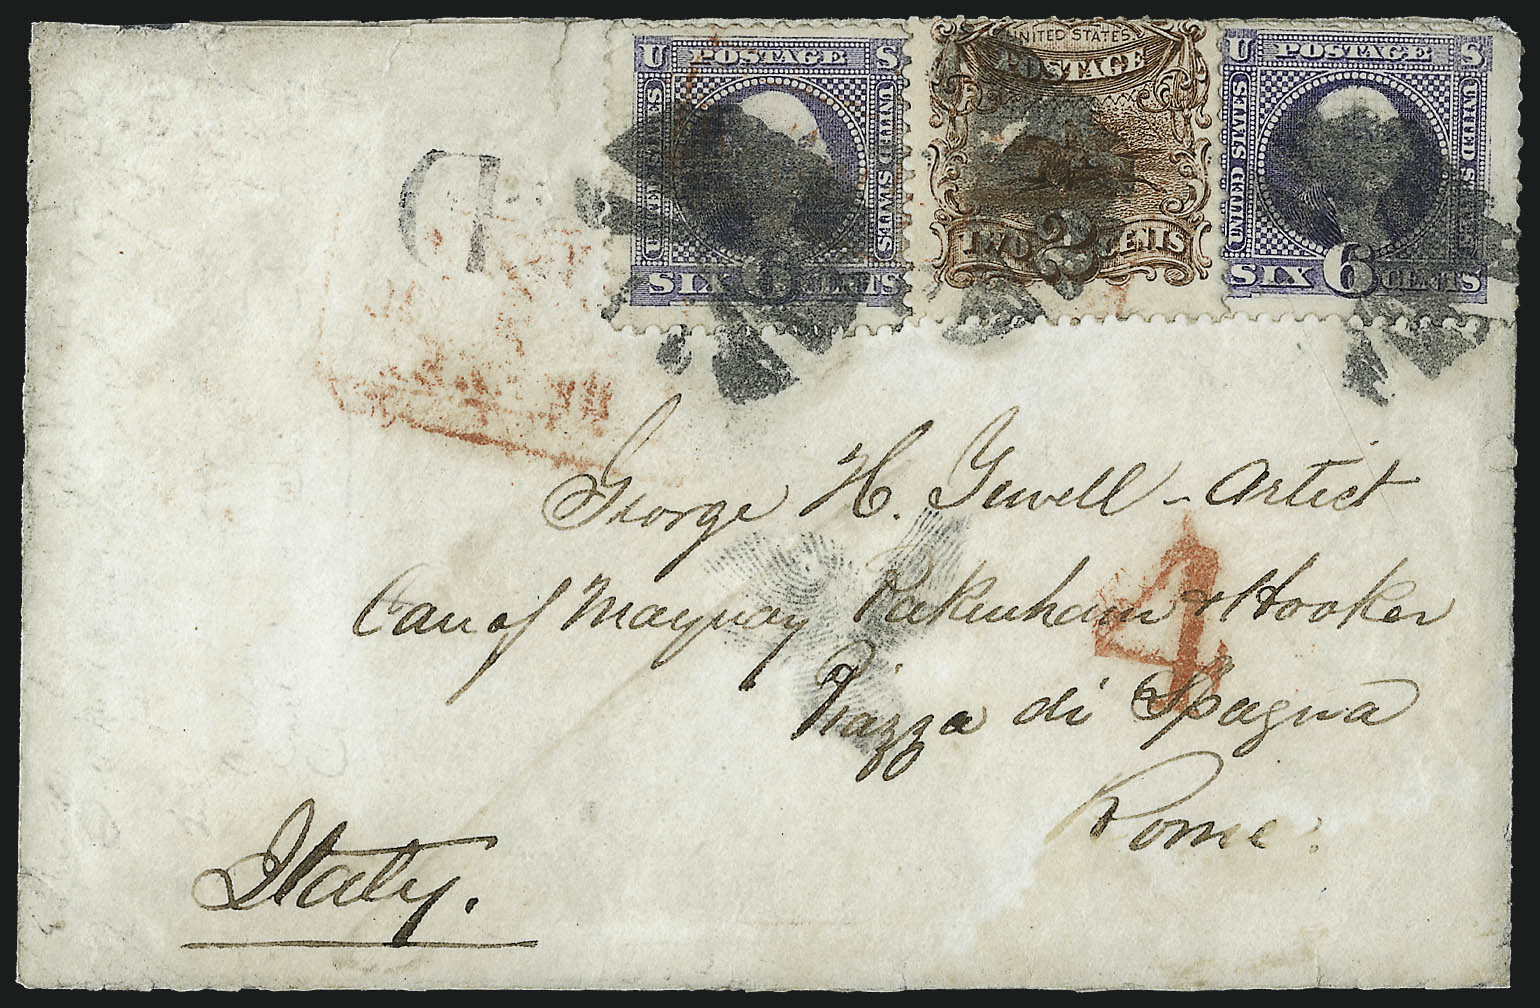 U POSTAGE S
UNITED STATES
SIX 6 CENTS
UNITED STATES
POSTAGE
TWO 2 CENTS
U POSTAGE S
UNITED STATES
UNITED STATES
SIX 6 CENTS
PD
George H. Yewell - Artist
Care of Maquay Pakenham & Hooker
4
Piazza di Spagna
Rome.
Italy.